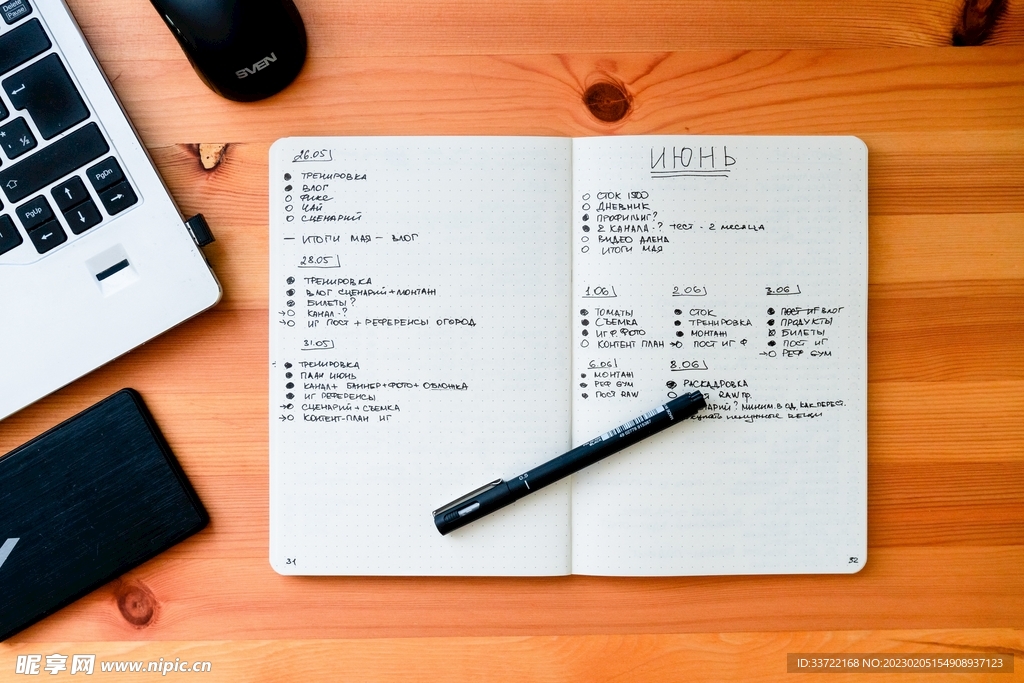 Delete
Pause
PgUp
PgDn
SVEN
26.05
ТРЕНИРОВКА
ВЛОГ
ФИКС
ЧАЙ
СЦЕНАРИЙ
— ИТОГИ МАЯ — ВЛОГ
28.05
ТРЕНИРОВКА
ВЛОГ СЦЕНАРИЙ + МОНТАЖ
БИЛЕТЫ?
КАНАЛ - ?
ИГ ПОСТ + РЕФЕРЕНСЫ ОГОРОД
31.05
ТРЕНИРОВКА
ПЛАН ИЮНЬ
КАНАЛ + БАННЕР + ФОТО + ОБЛОЖКА
ИГ РЕФЕРЕНСЫ
СЦЕНАРИЙ + СЪЕМКА
КОНТЕНТ-ПЛАН ИГ
31
ИЮНЬ
СТОК 1500
ДНЕВНИК
ПРОФИЛЬ ИГ?
2 КАНАЛА - ? ТЕСТ - 2 МЕСЯЦА
ВИДЕО АЛЕНА
ИТОГИ МАЯ
1.06
ТОМАТЫ
СЪЕМКА
ИГ Ф. ФОТО
КОНТЕНТ ПЛАН
2.06
СТОК
ТРЕНИРОВКА
МОНТАЖ
ПОСТ ИГ Ф
3.06
ПОСТ ИГ ВЛОГ
ПРОДУКТЫ
БИЛЕТЫ
ПОСТ ИГ
РЕФ GYM
6.06
МОНТАЖ
РЕФ GYM
ПОСТ RAW
8.06
РАСКАДРОВКА
RAW ПР.
? МИНИМ. В ОД. КАК ПЕРЕСТ.
ненужные вещи
0.5
52
昵享网 www.nipic.cn
ID:33722168 NO:20230205154908937123